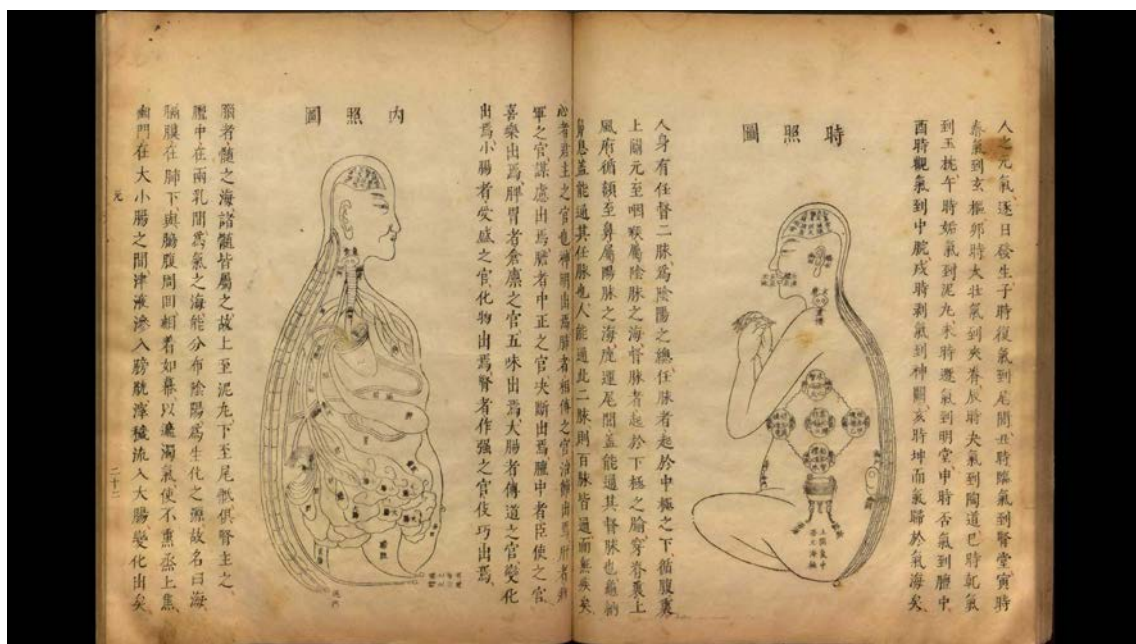 人之元氣、逐日發生、子時復氣到尾閭、丑時臨氣到腎堂、寅時
泰氣到玄樞、卯時大壯氣到夾脊、辰時夬氣到陶道、巳時乾氣
到玉枕、午時姤氣到泥丸、未時遯氣到明堂、申時否氣到膻中
酉時觀氣到中脘、戌時剝氣到神闕、亥時坤而氣歸於氣海矣、
時照圖
人身有任督二脉、為陰陽之總、任脉者起於中極之下、循腹裏
上關元至咽喉、屬陰脉之海、督脉者起於下極之腧、穿脊裏上
風府、循額至鼻、屬陽脉之海、鹿運尾閭、蓋能通其督脉也、龜納
鼻息、蓋能通其任脉也、人能通此二脉、則百脉皆通而無疾矣、
心者君主之官也、神明出焉、肺者相傅之官、治節出焉、肝者將
軍之官、謀慮出焉、膽者中正之官、決斷出焉、膻中者臣使之官、
喜樂出焉、脾胃者倉廩之官、五味出焉、大腸者傳道之官、變化
出焉、小腸者受盛之官、化物出焉、腎者作强之官、伎巧出焉、
內照圖
腦者髓之海、諸髓皆屬之、故上至泥丸、下至尾骶、俱腎主之、
膻中在兩乳間、為氣之海、能分布陰陽、為生化之源、故名曰海
膈膜在肺下、與脇腹周回相着如幕、以遮濁氣、使不熏蒸上焦、
幽門在大小腸之間、津液滲入膀胱、滓穢流入大腸、變化出矣、
元
二十二